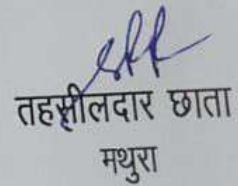 तहसीलदार छाता
मथुरा